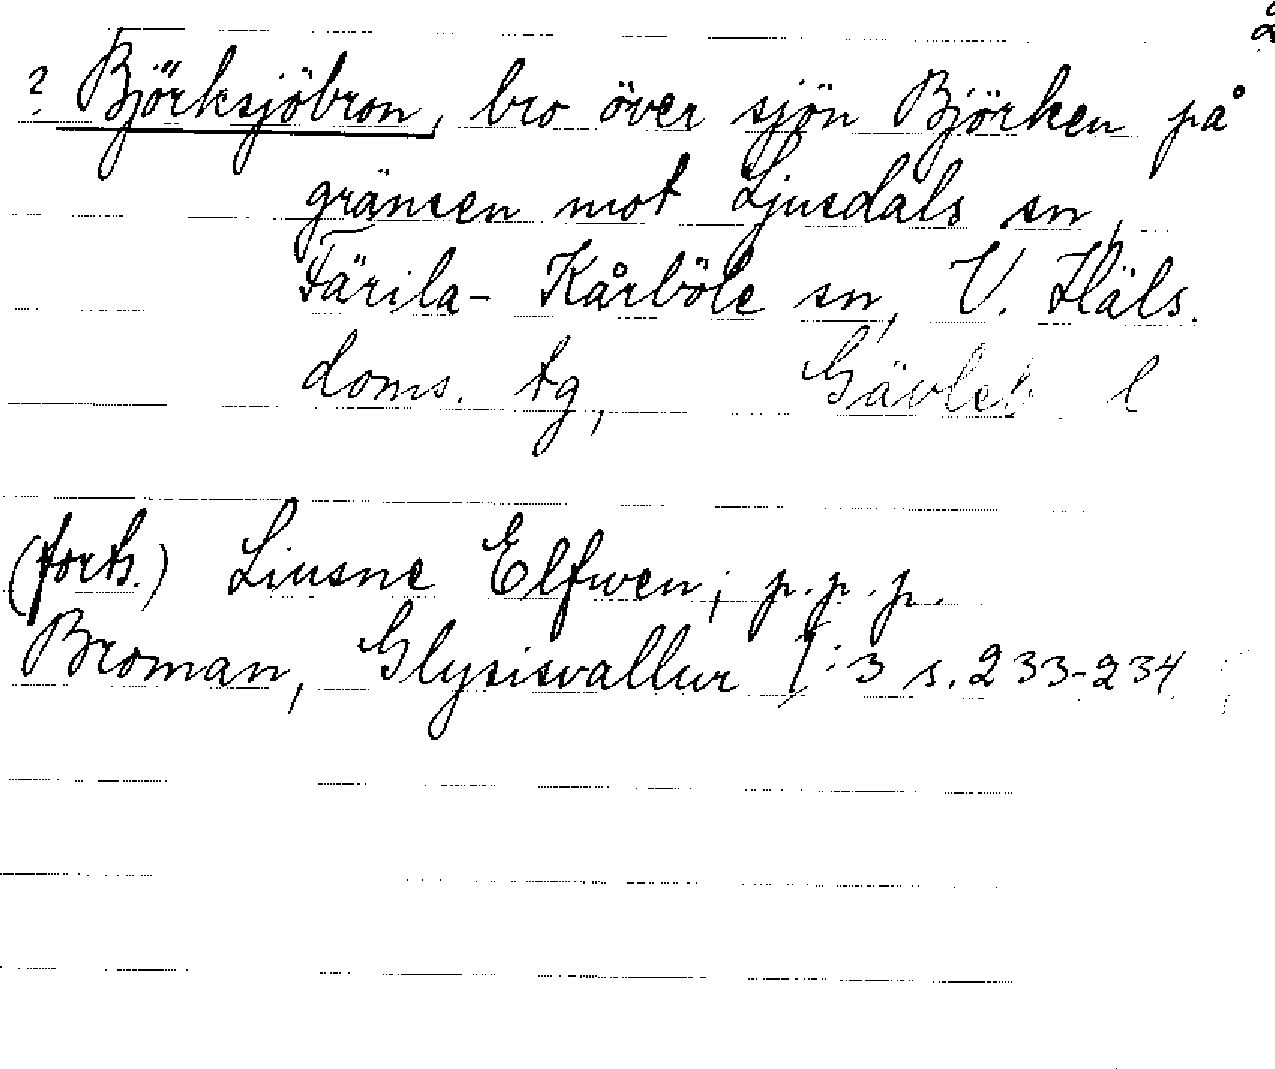 2
? Björksjöbron, bro över sjön Björken på
gränsen mot Ljusdals sn,
Färila-Kårböle sn, V. Häls.
doms. tg, Gävleb. l
(forts.) Liusne Elfwen; p.p.p.
Broman, Glysisvallur I:3 s. 233-234